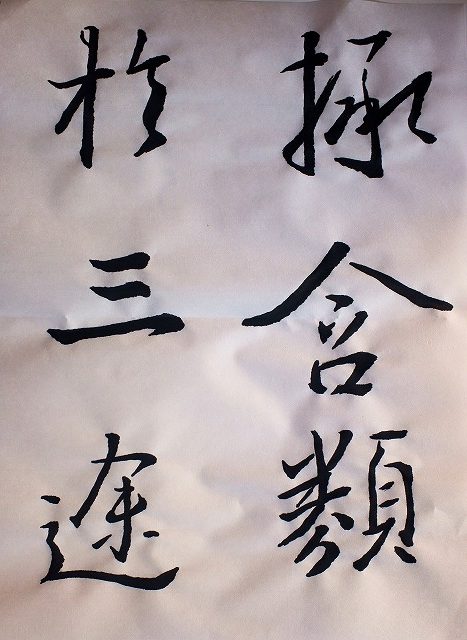 拯含類
於三途